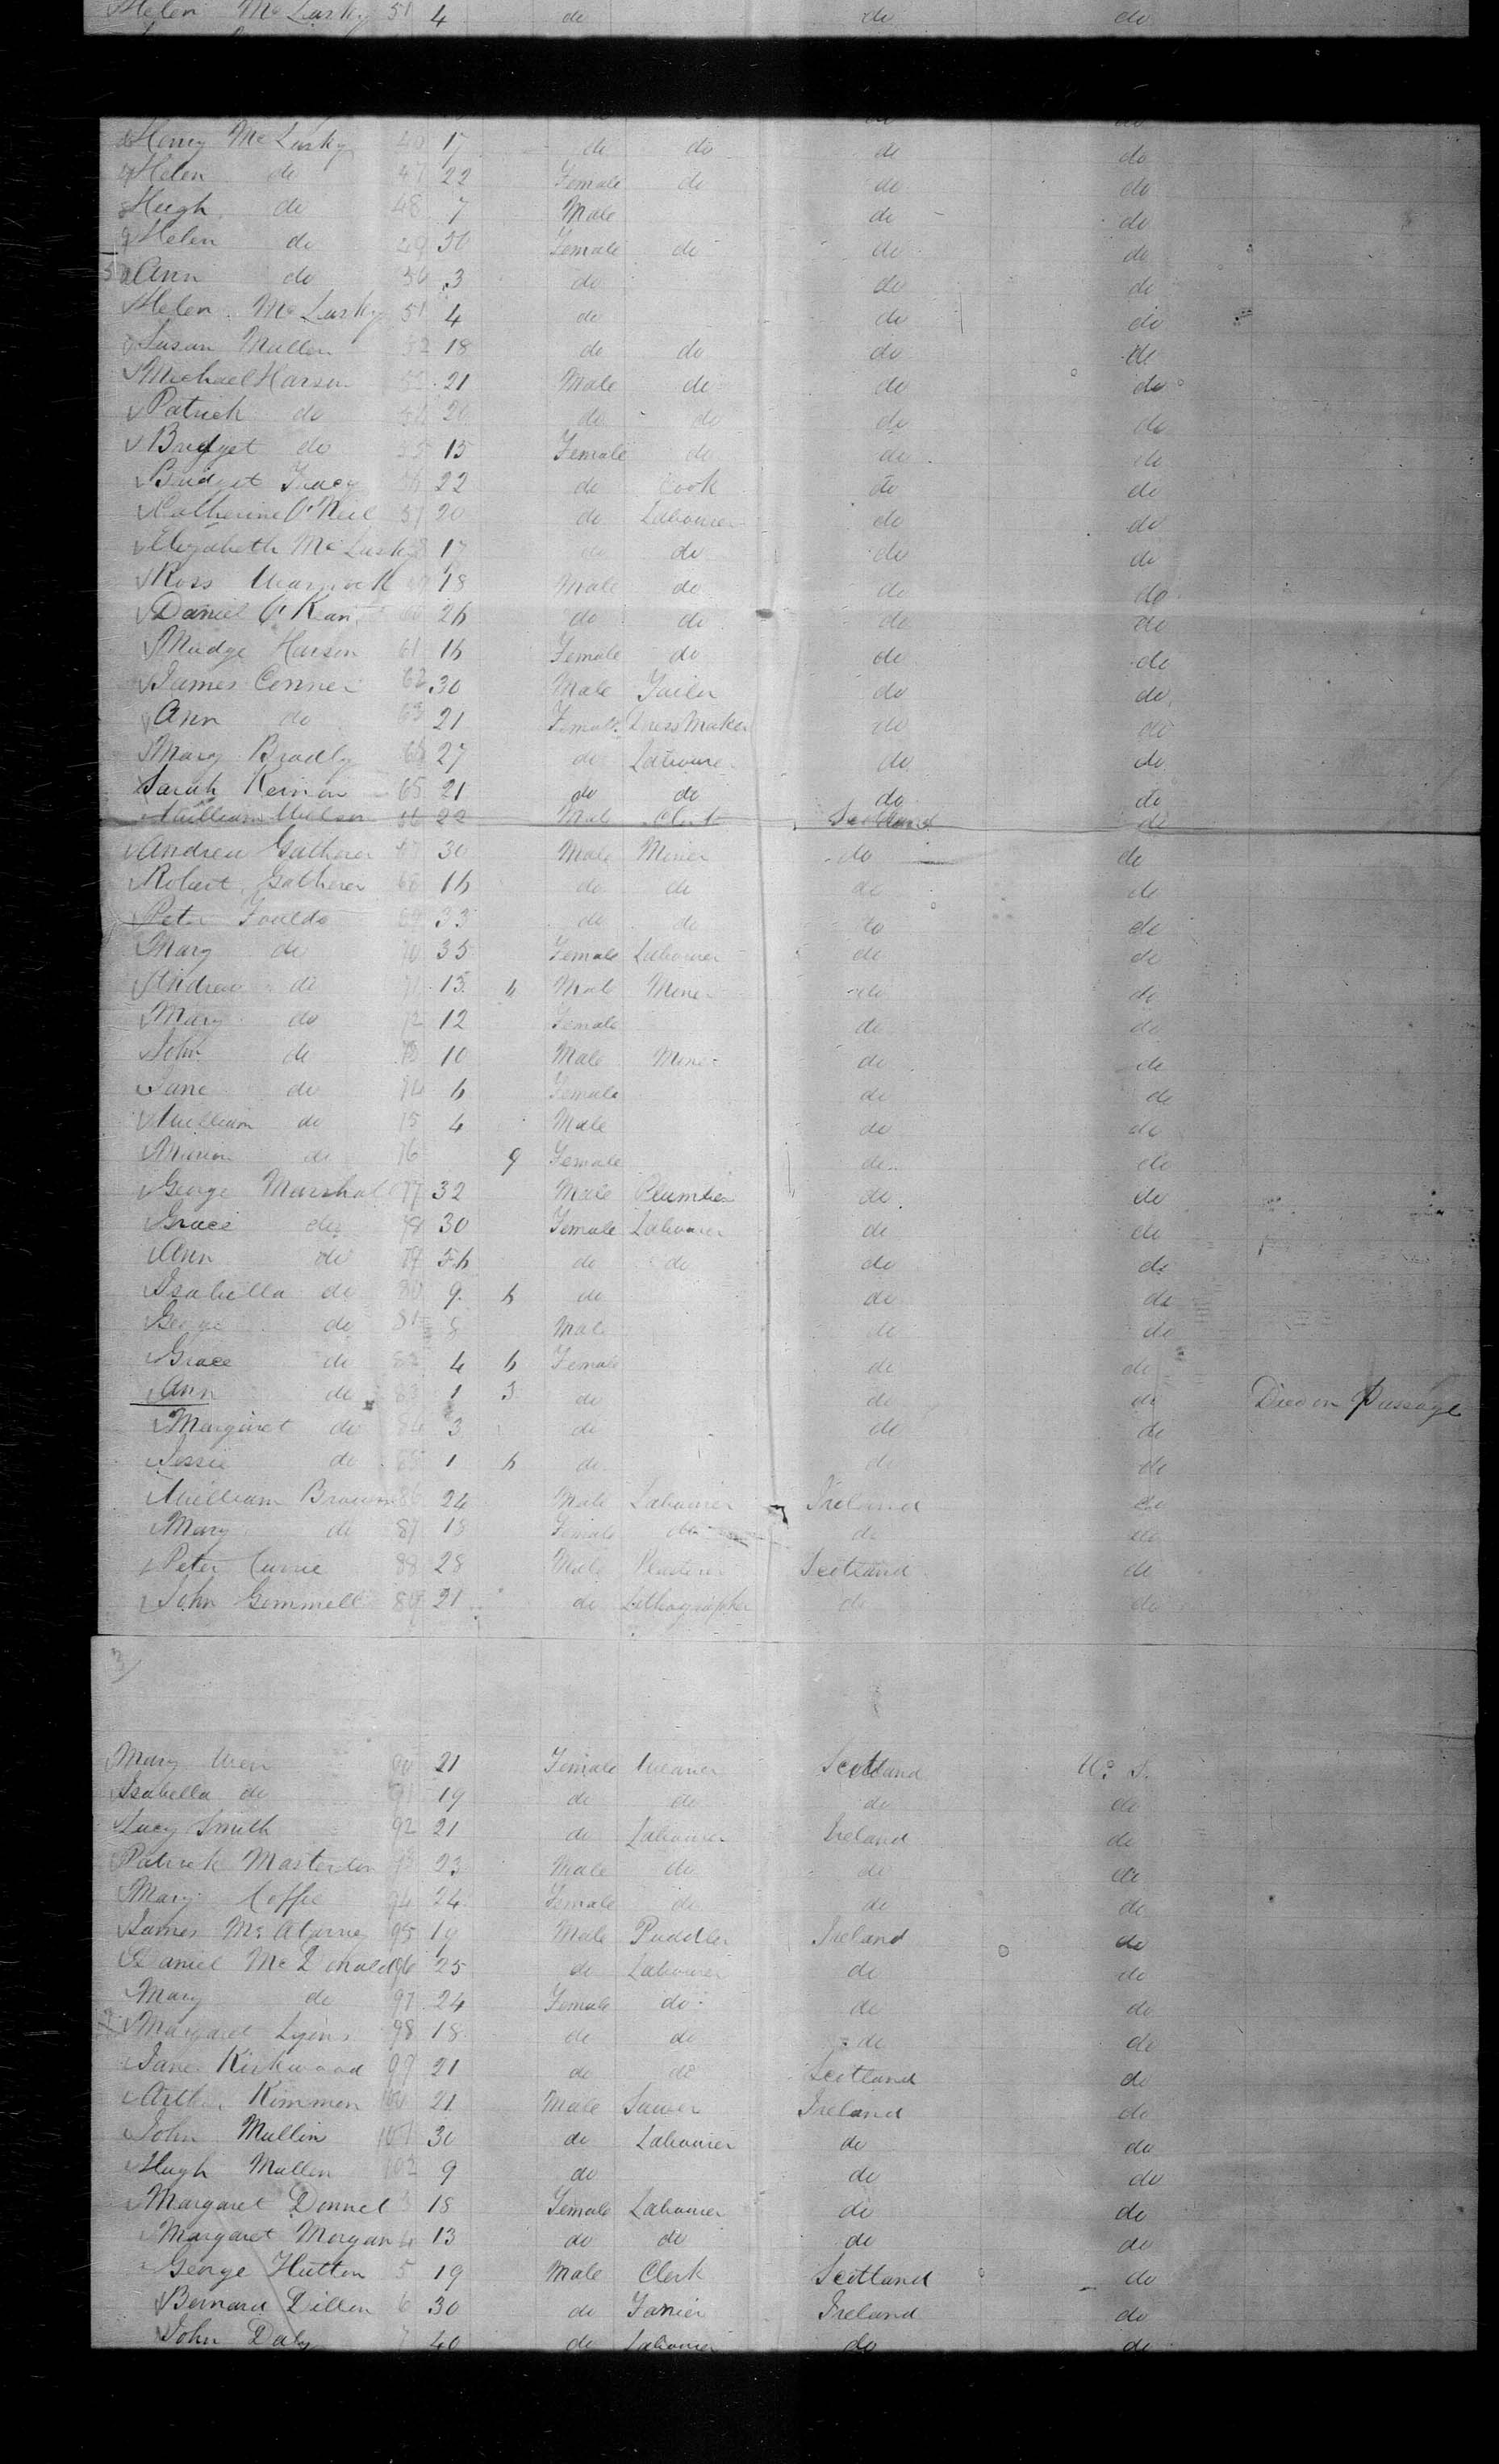 Helen McLusky 51 4 do do do
Henry McLusky 17 do do do do
Helen do 47 22 Female do do do
Hugh do 48 7 Male do do
Helen do 49 50 Female do do do
Ann do 50 3 do do do
Helen McLusky 51 4 do do do
Susan Mullen 52 18 do do do do
Michael Harson 53 21 Male do do do
Patrick do 20 do do do do
Bridget do 55 15 Female do do do
Bridget Tracy 56 22 do Cook do do
Catherine O'Neil 57 20 do Labourer do do
Elizabeth McLusky 17 do do do do
Ross 18 Male do do do
Daniel O'Kean 60 26 do do do do
Madge Harson 61 16 Female do do do
James Conner 62 30 Male Tailer do do
Ann do 63 21 Female Dress Maker do do
Mary Bradly 64 27 do Labourer do do
Sarah Kernon 65 21 do do do do
William Wilson 66 22 Male Clerk Scotland do
Andrew Gatherer 67 30 Male Miner do do
Robert Gatherer 68 16 do do do do
Peter Foulds 69 33 do do do do
Mary do 70 35 Female Labourer do do
Andrew do 71 13 6 Male Miner do do
Mary do 72 12 Female do do
John do 73 10 Male Miner do do
Jane do 74 6 Female do do
William do 75 4 Male do do
Marion do 76 9 Female do do
George Marshal 77 32 Male Plumber do do
Grace do 78 30 Female Labourer do do
Ann do 79 56 do do do do
Isabella do 80 9 6 do do do
George do 81 8 Male do do
Grace do 82 4 6 Female do do
Ann do 83 1 3 do do do Died on Passage
Margaret do 84 3 do do do
Jessie do 85 1 6 do do do
William Brown 86 24 Male Labourer Ireland do
Mary do 87 18 Female do do do
Peter Currie 88 28 Male Plasterer Scotland do
John Gemmell 89 21 do Lithographer do do
3
Mary Weir 90 21 Female Weaver Scotland U. S.
Isabella do 91 19 do do do do
Lucy Smith 92 21 do Labourer Ireland do
Patrick Masterton 93 23 Male do do do
Mary Coffie 94 24 Female do do do
James 95 19 Male Puddler Ireland do
Daniel McDonald 96 25 do Labourer do do
Mary do 97 24 Female do do do
Margaret Lyons 98 18 do do do do
Jane Kirkwood 99 21 do do Scotland do
Arthur Kimmon 100 21 Male Sawer Ireland do
John Mullin 101 30 do Labourer do do
Hugh Mullen 102 9 do do do
Margaret Donnel 3 18 Female Labourer do do
Margaret Morgan 4 13 do do do do
George Hutton 5 19 Male Clerk Scotland do
Bernard Dillen 6 30 do Ireland do
John Daly 7 40 do Labourer do do